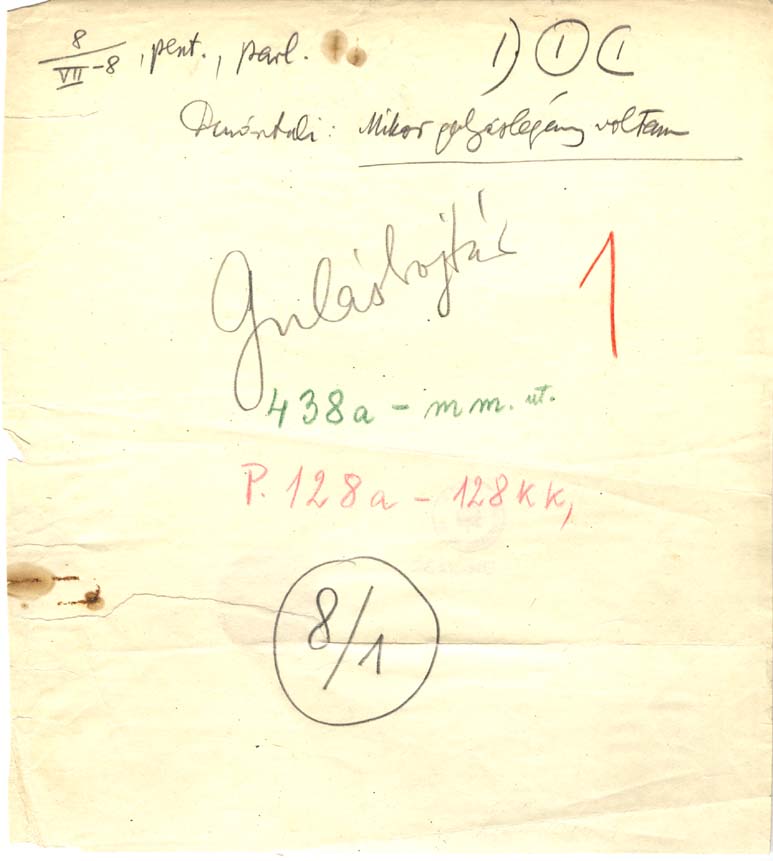 8/VII-8, pent., parl. 1) ① (1
Dunántuli: Mikor gulyáslegény voltam
Gulásbojtár
1
438a - mm. ut.
P. 128a - 128kk,
8/1